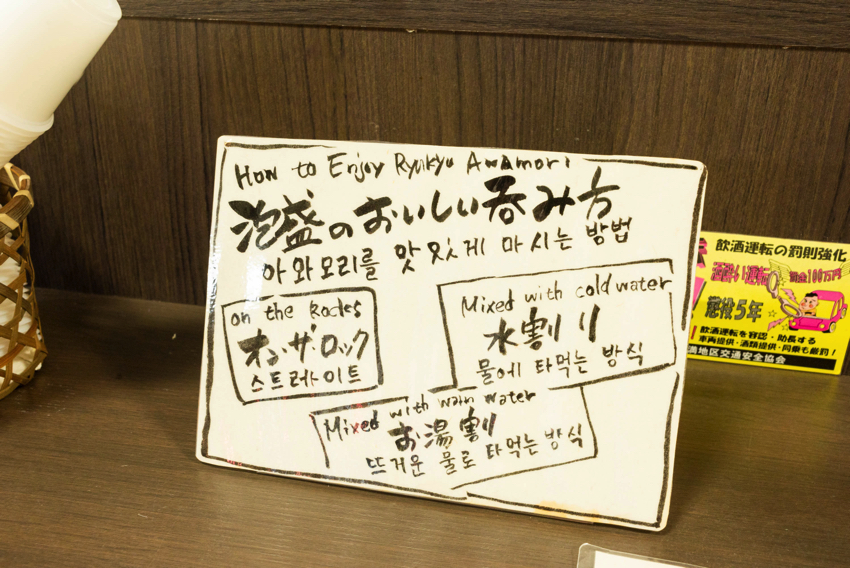 How to Enjoy Ryukyu Awamori
泡盛のおいしい呑み方
아와모리를 맛있게 마시는 방법
on the Rocks
オン・ザ・ロック
스트레이트
Mixed with cold water
水割り
물에 타먹는 방식
Mixed with warm water
お湯割
뜨거운 물로 타먹는 방식
飲酒運転の罰則強化
酒酔い運転 罰金100万円
懲役5年
飲酒運転を容認・助長する
車両提供・酒類提供・同乗も厳罰!
満地区交通安全協会